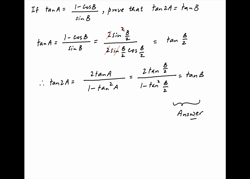 If tanA = (1-cosB)/sinB, prove that tan2A = tanB
tanA = (1-cosB)/sinB = (2sin²(B/2))/(2sin(B/2)cos(B/2)) = tan(B/2)
∴ tan2A = (2tanA)/(1-tan²A) = (2tan(B/2))/(1-tan²(B/2)) = tanB
Answer